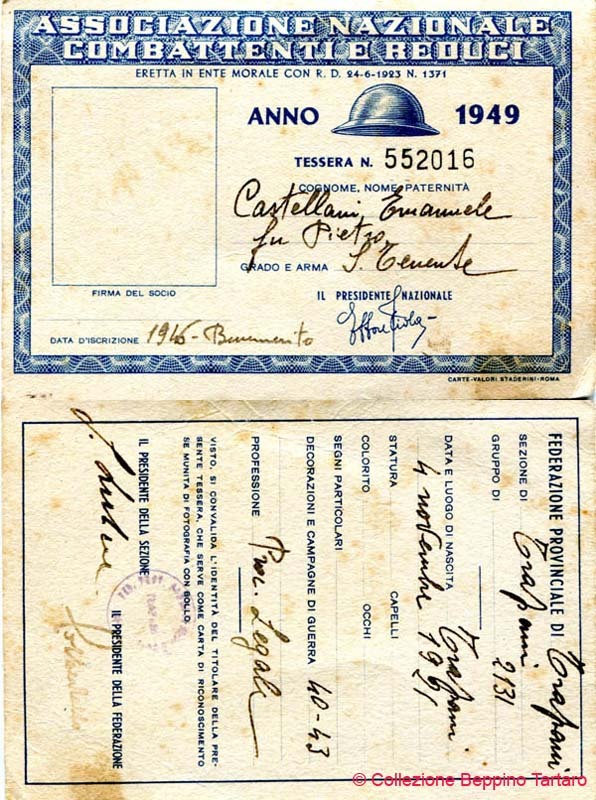 ASSOCIAZIONE NAZIONALE
COMBATTENTI E REDUCI
ERETTA IN ENTE MORALE CON R. D. 24-6-1923 N. 1371
ANNO 1949
TESSERA N. 552016
COGNOME, NOME, PATERNITÀ
Castellani Emanuele
fu Pietro
GRADO E ARMA S. Tenente
IL PRESIDENTE NAZIONALE
FIRMA DEL SOCIO
DATA D'ISCRIZIONE 1945 - Benemerito
CARTE-VALORI STADERINI-ROMA
FEDERAZIONE PROVINCIALE DI Trapani
SEZIONE DI Trapani
GRUPPO DI 2131
DATA E LUOGO DI NASCITA Trapani
4 novembre 1921
STATURA CAPELLI
COLORITO OCCHI
SEGNI PARTICOLARI
DECORAZIONI E CAMPAGNE DI GUERRA 40-43
PROFESSIONE Proc. Legale
VISTO, SI CONVALIDA L'IDENTITÀ DEL TITOLARE DELLA PRE-
SENTE TESSERA, CHE SERVE COME CARTA DI RICONOSCIMENTO
SE MUNITA DI FOTOGRAFIA CON BOLLO
IL PRESIDENTE DELLA SEZIONE IL PRESIDENTE DELLA FEDERAZIONE
© Collezione Beppino Tartaro